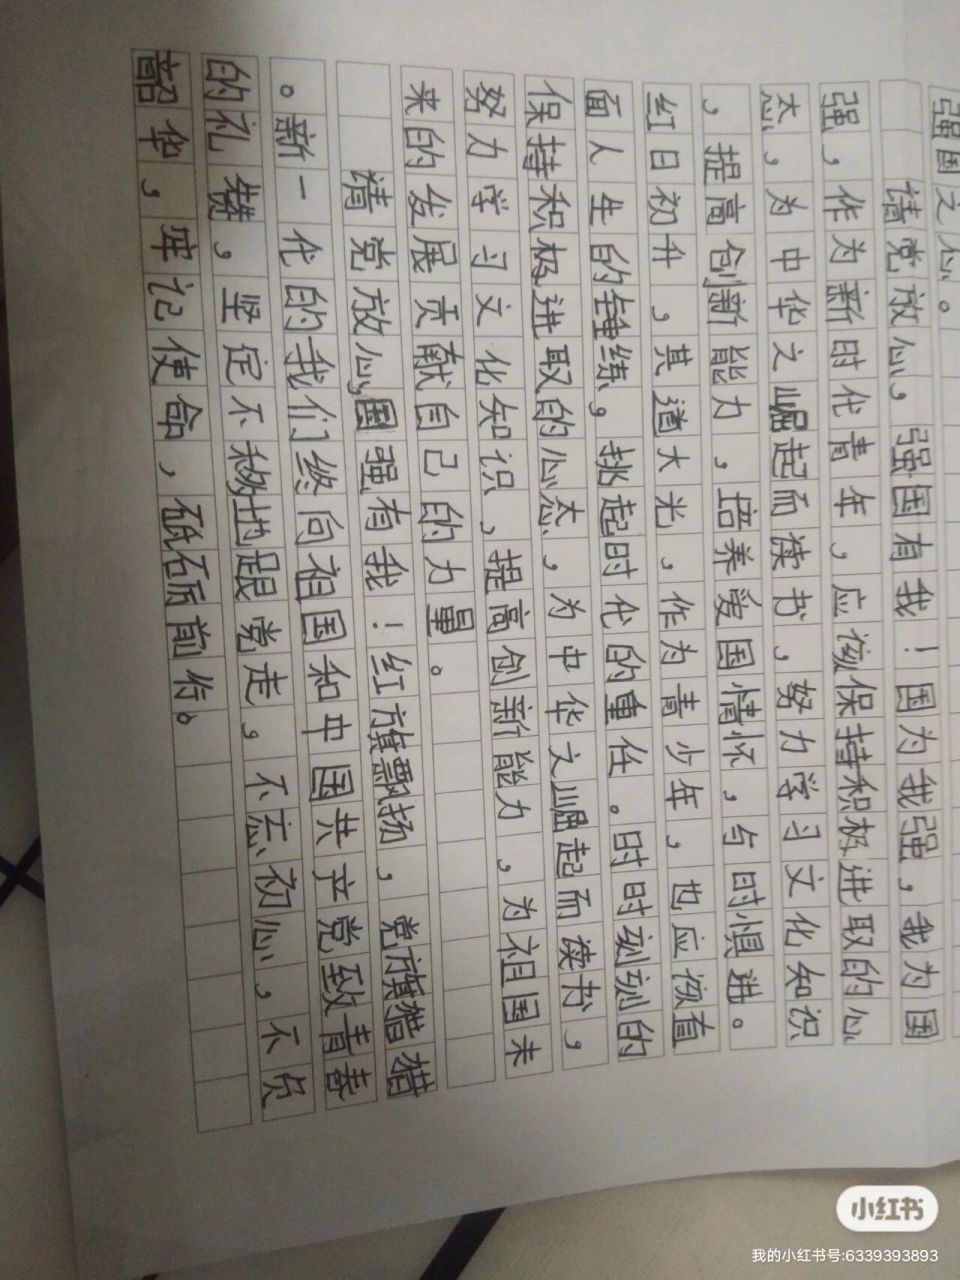 强国之心。
请党放心，强国有我！国为我强，我为国
强，作为新时代青年，应该保持积极进取的心
态，为中华之崛起而读书，努力学习文化知识
，提高创新能力，培养爱国情怀，与时惧进。
红日初升，其道大光，作为青少年，也应该直
面人生的锤练，挑起时代的重任。时时刻刻的
保持积极进取的心态，为中华之崛起而读书，
努力学习文化知识，提高创新能力，为祖国未
来的发展贡献自己的力量。
请党放心，国强有我！红旗飘扬，党旗猎猎
。新一代的我们终向祖国和中国共产党致青春
的礼赞，坚定不移地跟党走。不忘初心，不负
韶华，牢记使命，砥砺前行。
小红书
我的小红书号:6339393893